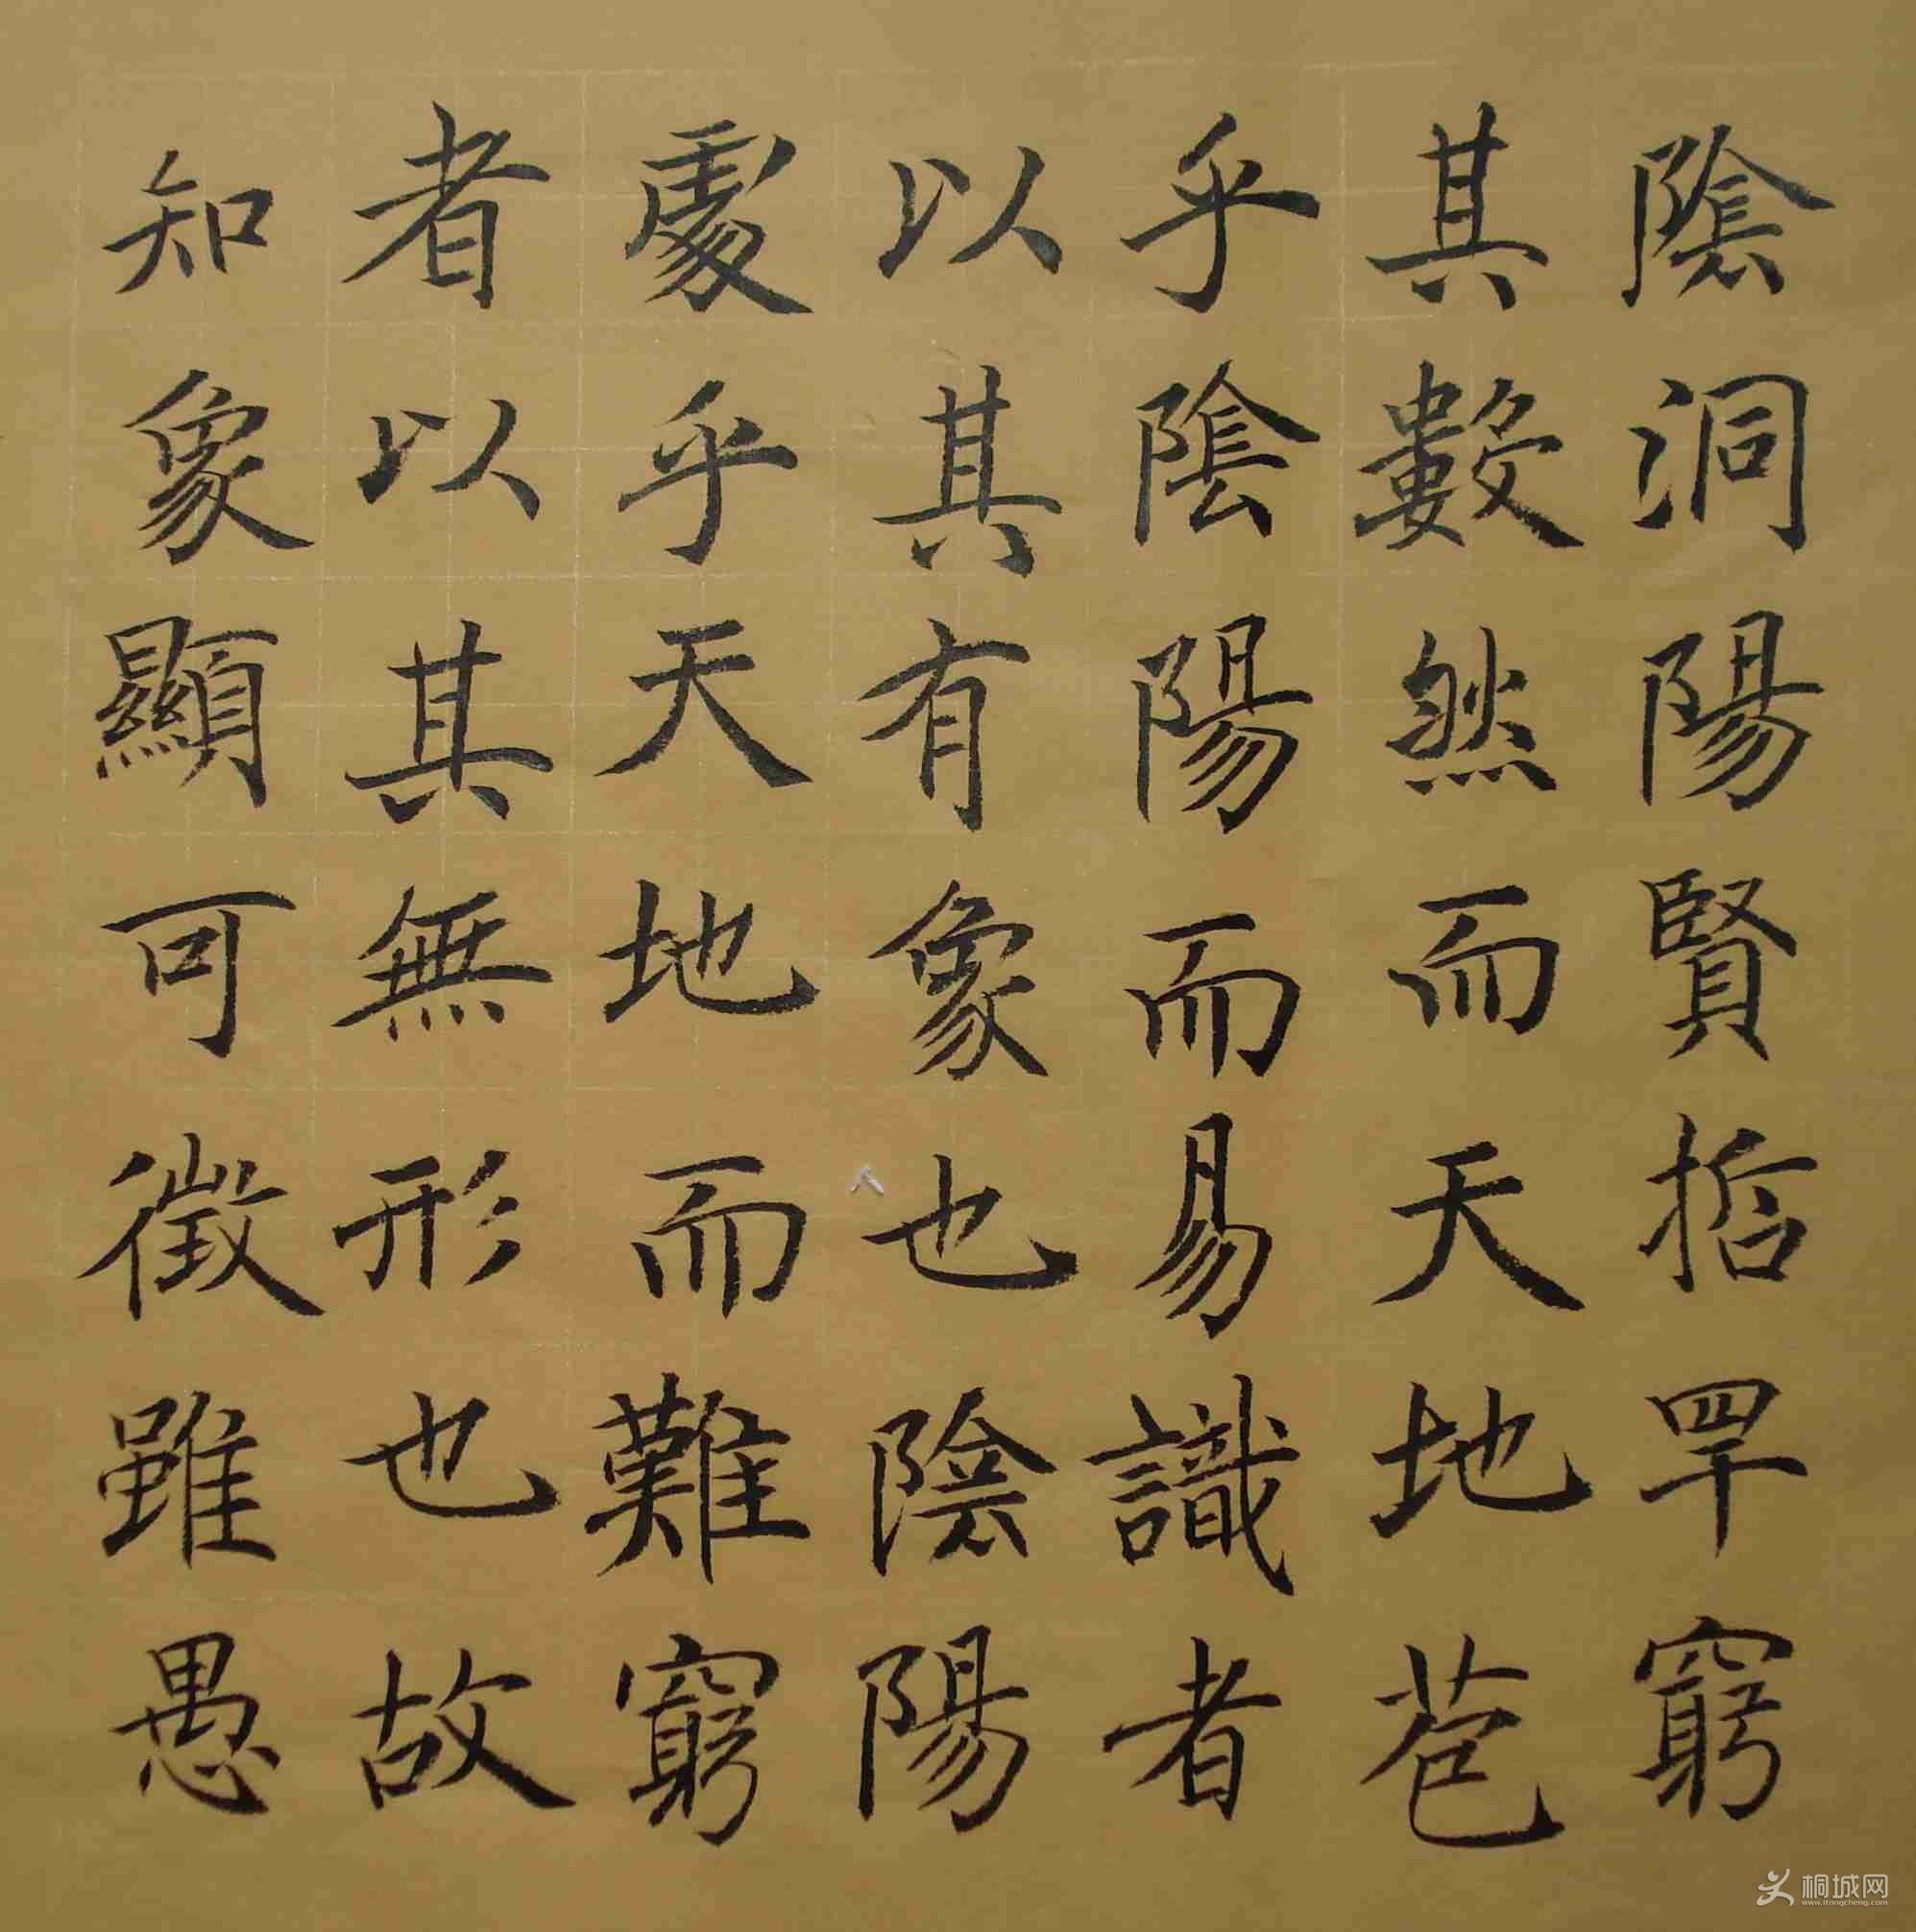 陰洞陽賢哲罕窮
其數然而天地苞
乎陰陽而易識者
以其有象也陰陽
處乎天地而難窮
者以其無形也故
知象顯可徵雖愚
桐城网
www.itongcheng.com